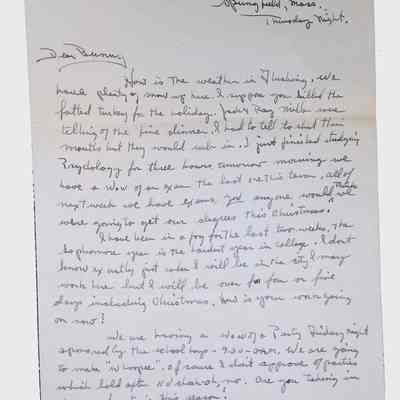 Springfield, Mass.
Thursday Night.
Dear Bunny
How is the weather in Flushing, we
have plenty of snow up here. I suppose you killed the
fatted turkey for the holiday. Ray were
telling of the fine dinner, I had to tell to shut their
mouths but they would rub in. I just finished studying
Psychology for three hours tomorrow morning we
have a wow of an exam the last one this term, all of
next week we have exams, god anyone would think we
were going to get our degrees this Christmas.
I have been in a fog for the last two weeks, the
sophomore year is the hardest year in college. I don't
know exactly just when I will be in the city I may
work here but I will be over for four or five
days including Christmas. How is your work going
on now?
We are having a wow of a Party Friday night
sponsored by the school boys - 9:00 - We are going
to make "whoopee". of course I don't approve of parties
which hold after no. Are you taking in
this season?